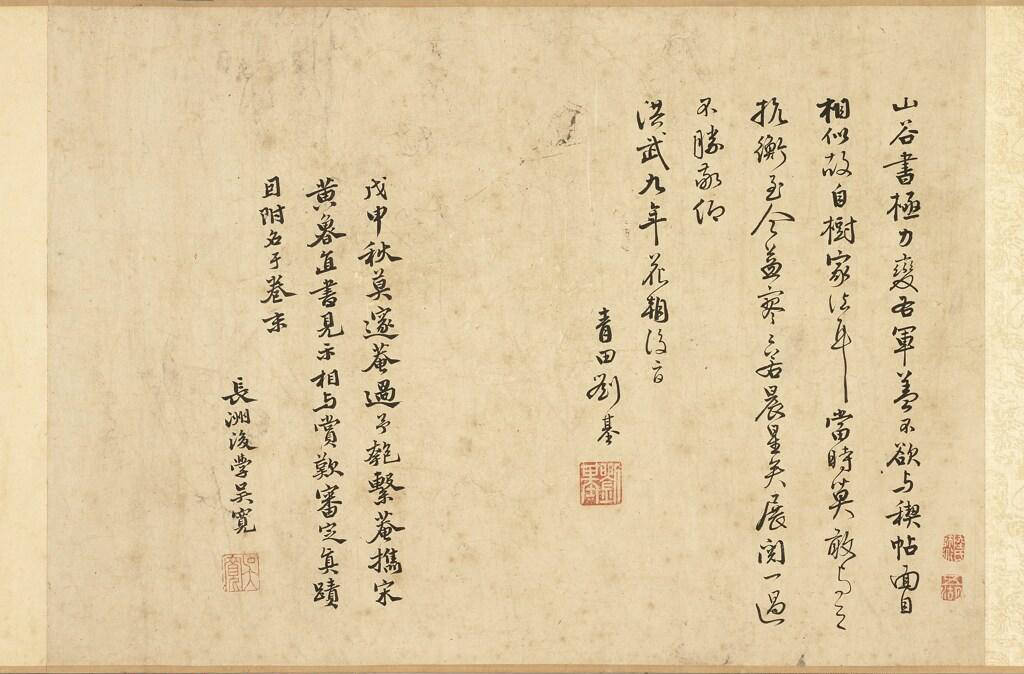 山谷書極力變右軍蓋不欲与稧帖面目
相似故自樹家法耳當時莫敢与之
抗衡至今益寥寥若晨星矣展閱一過
不勝敬仰
洪武九年花朝後二日
青田劉基
戊申秋莫邃菴過予匏繫菴攜宋
黃魯直書見示相与賞歎審定真蹟
因附名于卷末
長洲後学吳寬
吳寬